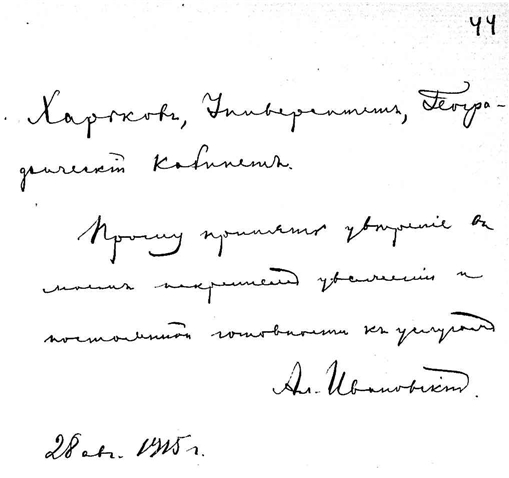 44
Харьковъ, Университетъ, Геогра-
фическій кабинетъ.
Прошу принять увѣреніе въ
моемъ искреннемъ уваженіи и
постоянной готовности къ услугамъ
Ал. Ивановскій.
28 авг. 1915 г.